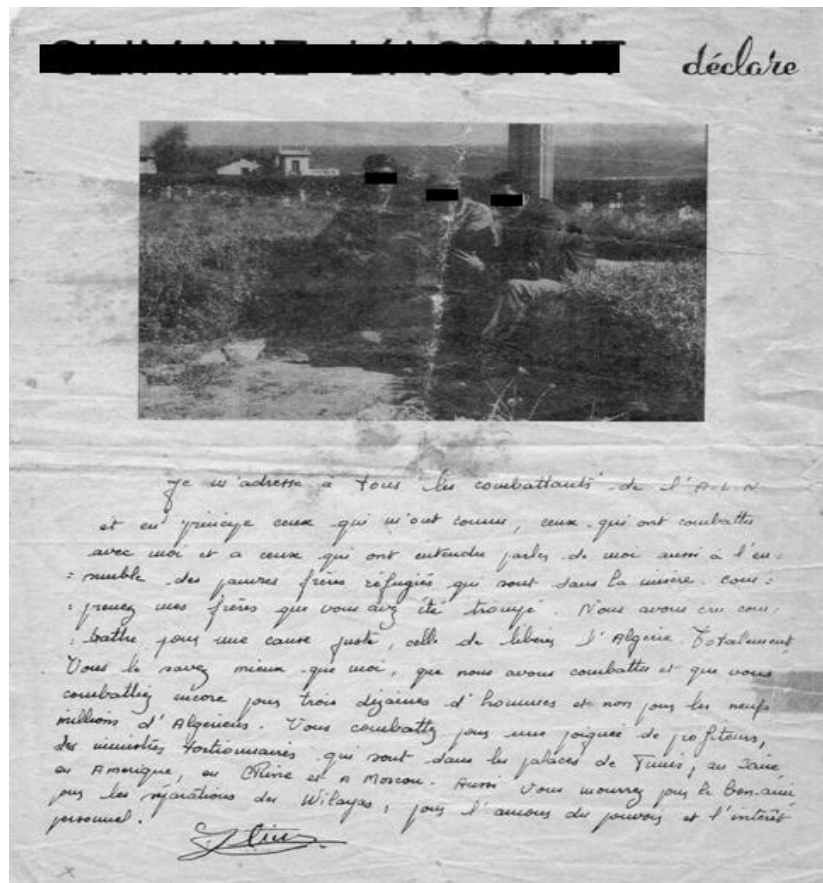 déclare
Je m'adresse à tous les combattants de l'A-L-N
et en principe ceux qui m'ont connu, ceux qui ont combattu
avec moi et a ceux qui ont entendu parler de moi aussi à l'en=
=semble des pauvres frères réfugiés qui sont dans la misère. Com=
=prenez mes frères que vous avez été trompé. Nous avons cru com-
=battre pour une cause juste, celle de libérer l'Algérie Totalement
Vous le savez mieux que moi, que nous avons combattu et que vous
combattiez encore pour trois dizaines d'hommes et non pour les neufs
millions d'Algériens. Vous combattez pour une poignée de profiteurs,
des ministres tortionnaires qui sont dans les palaces de Tunis, au Caire,
en Amérique, en Chine et a Moscou. Aussi vous mourrez pour le
pour les séparations des Wilayas, pour l'amour du pouvoir et l'intérêt
personnel.